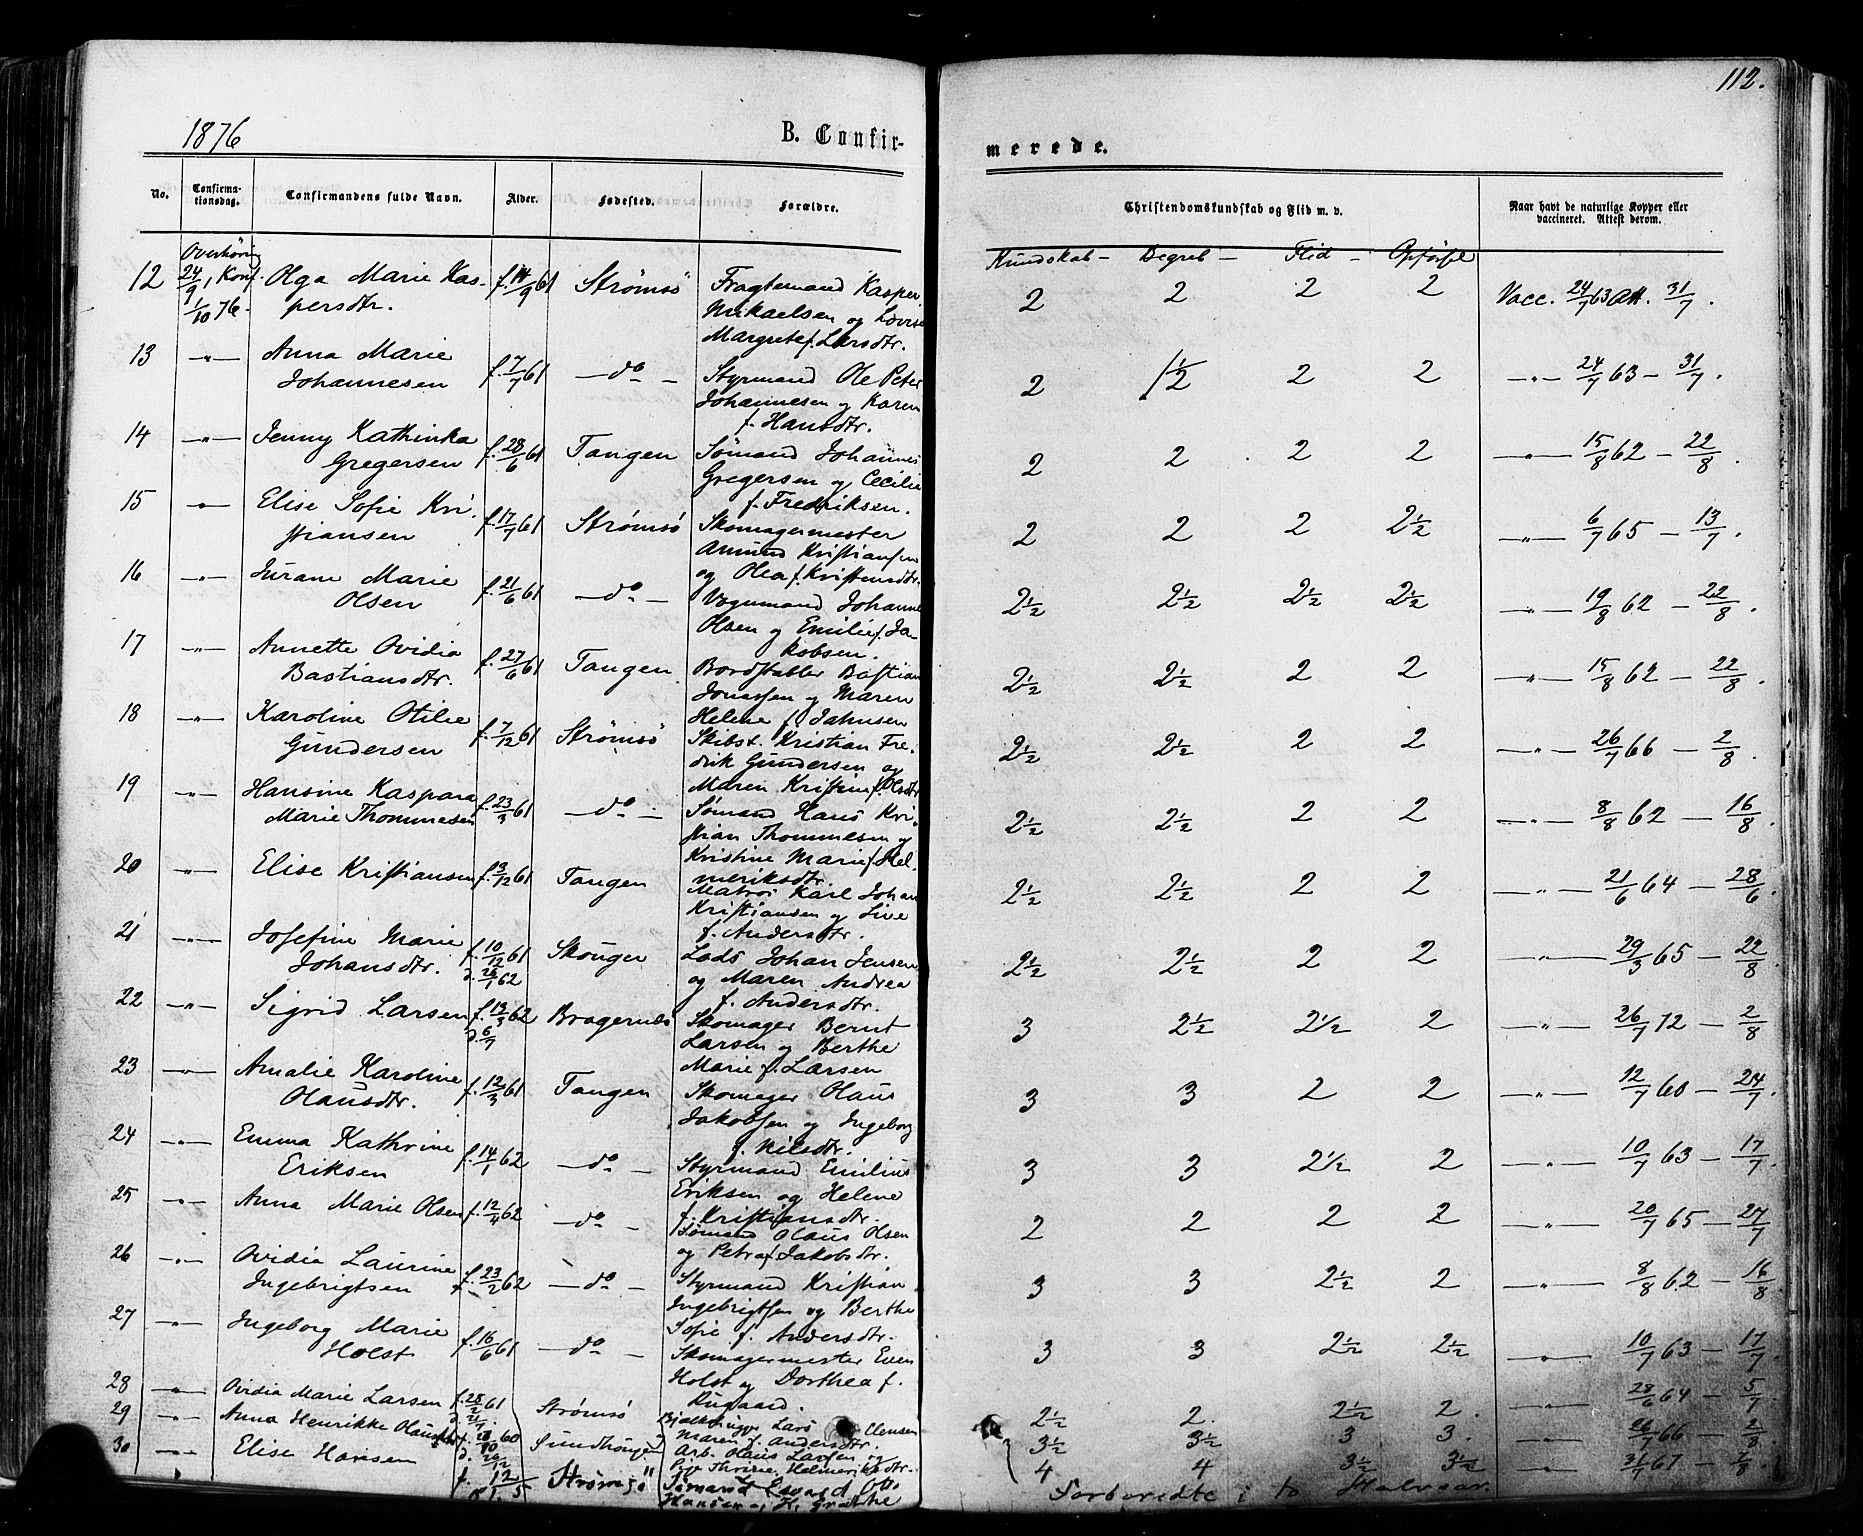 112.
1876
B. Confir-
merede.
No.
Confirma-
tionsdag.
Confirmandens fulde Navn.
Alder.
Fødested.
Forældre.
Christendomskundskab og Flid m. v.
Naar havt de naturlige Kopper eller
vaccineret. Attest derom.
Kundskab - Begreb - Flid - Opførsel
12 Overhöring 24/9, Konf. 1/10 76. Olga Marie Kas-
persdtr. f. 14/9 61 Strømsö Fragtemand Kasper
Mikaelsen og Lovise
Margrete f. Larsdtr.
2 2 2 2 Vacc. 24/7 63 Att. 31/7.
13 -"- Anna Marie
Johannesen f. 7/7 61 - do - Styrmand Ole Peter
Johannesen og Karen
f. Hansdtr.
2 1 1/2 2 2 -"- 24/7 63 - 31/7.
14 -"- Jenny Kathinka
Gregersen f. 28/6 61 Tangen Sømand Johannes
Gregersen og Cecilie
f. Fredriksen.
2 2 2 2 -"- 15/8 62 - 22/8.
15 -"- Elise Sofie Kri-
stiansen f. 17/7 61 Strømsö Skomagermester
Amund Kristiansen
og Olea f. Kristensdtr.
2 2 2 2 1/2 -"- 6/7 65 - 13/7.
16 -"- Jurane Marie
Olsen f. 21/6 61 - do - Vognmand Johannes
Olsen og Emilie f. Ja-
kobsen.
2 1/2 2 1/2 2 1/2 2 1/2 -"- 19/8 62 - 22/8.
17 -"- Annette Ovidia
Bastiansdtr. f. 27/6 61 Tangen Bordstabler Bastian
Jonassen og Maren
Helene f. Jahnsen
2 1/2 2 1/2 2 2 -"- 15/8 62 - 22/8.
18 -"- Karoline Otilie
Gundersen f. 7/12 61 Strømsö Skibst. Kristian Fre-
drik Gundersen og
Maren Kristine f. Olsdtr
2 1/2 2 1/2 2 2 -"- 26/7 66 - 2/8.
19 -"- Hansine Kaspara
Marie Thommesen f. 23/3 61 - do - Sømand Hans Kri-
stian Thommesen og
Kristine Marie f. Hel-
meriksdtr.
2 1/2 2 1/2 2 2 -"- 8/8 62 - 16/8.
20 -"- Elise Kristiansen f. 9/12 61 Tangen Matros Karl Johan
Kristiansen og Live
f. Andersdtr.
2 1/2 2 1/2 2 2 -"- 21/6 64 - 28/6.
21 -"- Josefine Marie
Johansdtr. f. 10/12 61
d. 26/1 62 Skouger Lods Johan Jensen
og Maren Andrea
f. Andersdtr.
2 1/2 2 1/2 2 2 -"- 29/3 65 - 22/8
22 -"- Sigrid Larsen f. 13/3 62
d. 6/7 Bragernæs Skomager Bernt
Larsen og Berthe
Marie f. Larsen
3 2 1/2 2 1/2 2 -"- 26/7 72 - 2/8
23 -"- Amalie Karoline
Olausdtr. f. 12/3 61 Tangen Skomager Olaus
Jakobsen og Ingeborg
f. Nilsdtr.
3 3 2 2 -"- 12/7 60 - 24/7.
24 -"- Emma Kathrine
Eriksen f. 14/1 62 - do - Styrmand Emilius
Eriksen og Helene
f. Kristiansdtr.
3 3 2 1/2 2 -"- 10/7 63 - 17/7.
25 -"- Anna Marie Olsen f. 12/4 62 - do - Sømand Olaus Olsen
og Petra f. Jakobsdtr.
2 2 2 2 -"- 20/7 65 - 27/7
26 -"- Ovidia Laurine
Ingebrigtsen f. 23/2 62 - do - Styrmand Kristian
Ingebrigtsen og Berthe
Sofie f. Andersdtr.
3 3 2 1/2 2 -"- 8/8 62 - 16/8.
27 -"- Ingeborg Marie
Holst f. 16/6 61 - do - Skomagermester Even
Holst og Dorthea f.
3 3 2 1/2 2 1/2 -"- 10/7 63 - 17/7.
28 -"- Ovidia Marie Larsen f. 28/2 61 Strømsö Lars Clensen
og Maren f. Andersdtr.
2 1/2 2. 2 1/2 2. 28/6 64 - 5/7
29 -"- Anna Henrikke f. 60 Arb. Olaus Larsen og
Thrine Helmeriksdtr.
3 1/2 3 1/2 3 3. -"- 26/7 66 - 2/8.
30 -"- Elise Hansen f. 12/5 Strømsö Sømand Edvard Otto
Hansen og
4 4 3 1/2 3 1/2 -"- 31/7 67
Forberedte i to Halvaar.